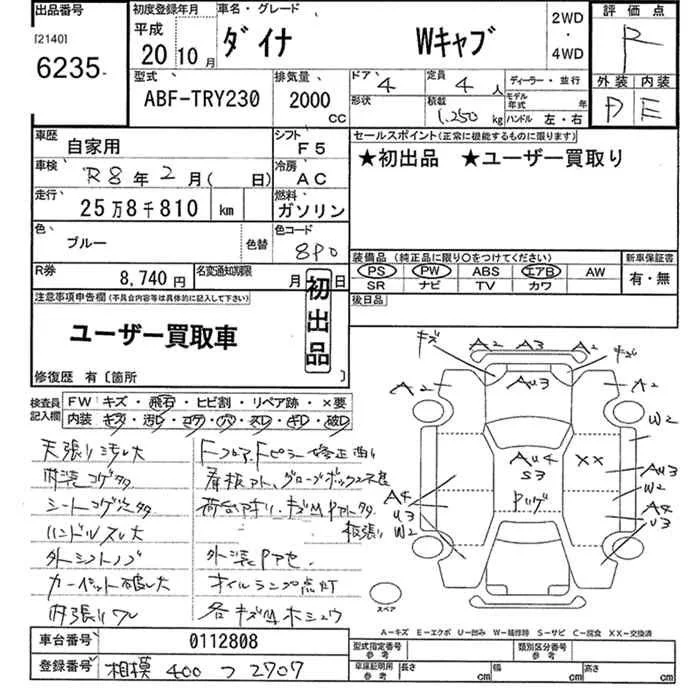 出品番号
[2140]
6235-
初度登録年月
平成
20年10月
車名・グレード
ダイナ Wキャブ
2WD
・
4WD
評価点
R
外装 内装
D E
型式
ABF-TRY230
排気量
2000
CC
ドア 4
定員 4人
形状
積載 1,250 kg
ディーラー・並行
モデル年式 年
ハンドル 左・右
車歴
自家用
シフト
F5
車検
R8年2月( 日)
冷房
AC
走行
25万8千810 km
燃料
ガソリン
色
ブルー
色替
色コード
8P0
R券
8,740円
名変通知期限 月 日
セールスポイント(正常に機能するものに限ります)
★初出品 ★ユーザー買取り
装備品 (純正品に限り〇をつけてください)
PS PW ABS エアB AW
SR ナビ TV カワ
新車保証書
有・無
後日品
注意事項申告欄(不具合内容等は具体的に記入して下さい)
ユーザー買取車
初出品
修復歴 有〔箇所 〕
検査員記入欄
FW キズ・飛石・ヒビ割・リペア跡・×要
内装 キズ・汚レ・コゲ・穴・スレ・キレ・破レ
天張り汚レ大
内装コゲ多
シートコゲ穴多
ハンドルスレ大
外シフトノブ
カーペット破レ大
内張りワレ
Fフロア、Fピラー修正曲り
看板アト、グローブボックス不良
外装Pアセ
オイルランプ点灯
各キズMホシュウ
キズ A2 A3 A2
A2 AU3 A2
W2
AU4
S3
XX
AU3
W2
A4
U3
A4
U3
W2
スペア
A－キズ E－エクボ U－凹み W－補修跡 S－サビ C－腐食 XX－交換済
車台番号
0112808
登録番号
相模 400 つ 2707
型式指定番号
参考
類別区分番号
参考
車庫証明用
参考
長さ cm
幅 cm
高さ cm